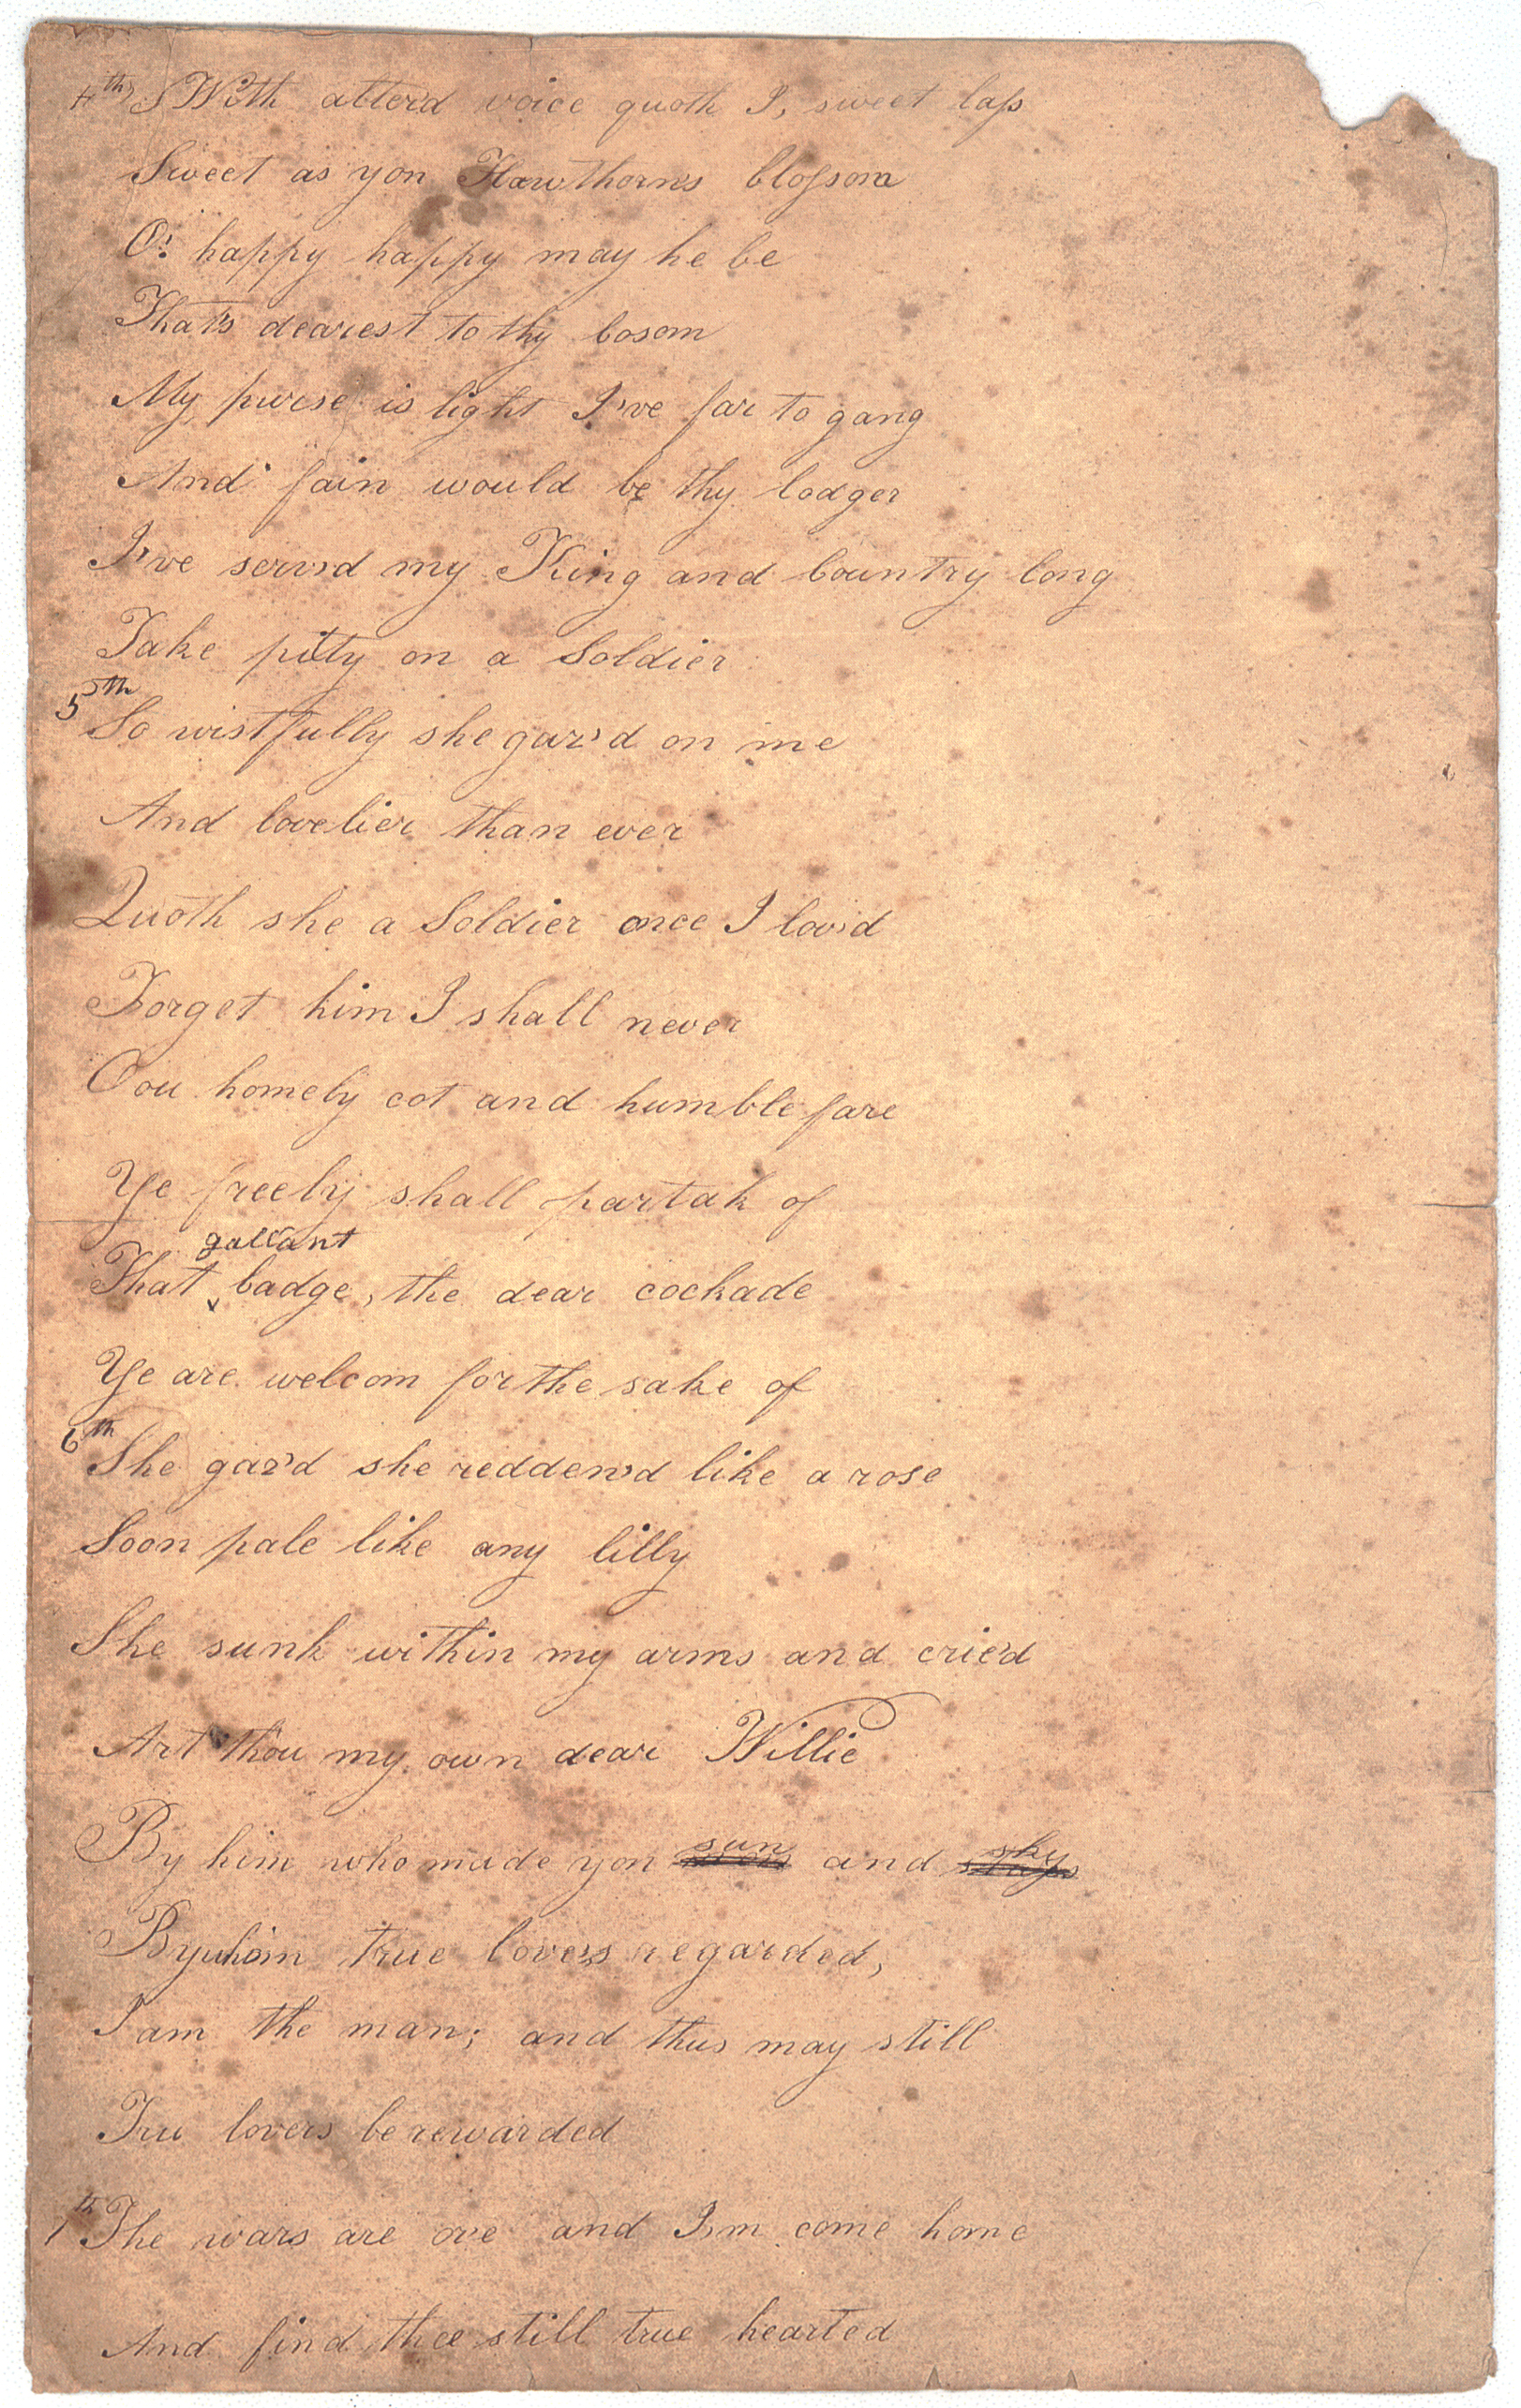 4th With alter'd voice quoth I, sweet lass
Sweet as yon Hawthorns blossom
O! happy happy may he be
That's dearest to thy bosom
My purse is light I've far to gang
And fain would be thy lodger
I've serv'd my King and Country long
Take pity on a Soldier
5th So wistfully she gaz'd on me
And lovelier than ever
Quoth she a Soldier once I lov'd
Forget him I shall never
Oou homely cot and humble fare
Ye freely shall partak of
gallant
That badge, the dear cockade
Ye are welcom for the sake of
6th She gaz'd she redden'd like a rose
Soon pale like any lilly
She sunk within my arms and cried
Art thou my own dear Willie
By him who made yon sun and sky
By whom true love's regarded,
I am the man; and thus may still
Tru lovers be rewarded
7th The wars are o'er and I'm come home
And find thee still true hearted